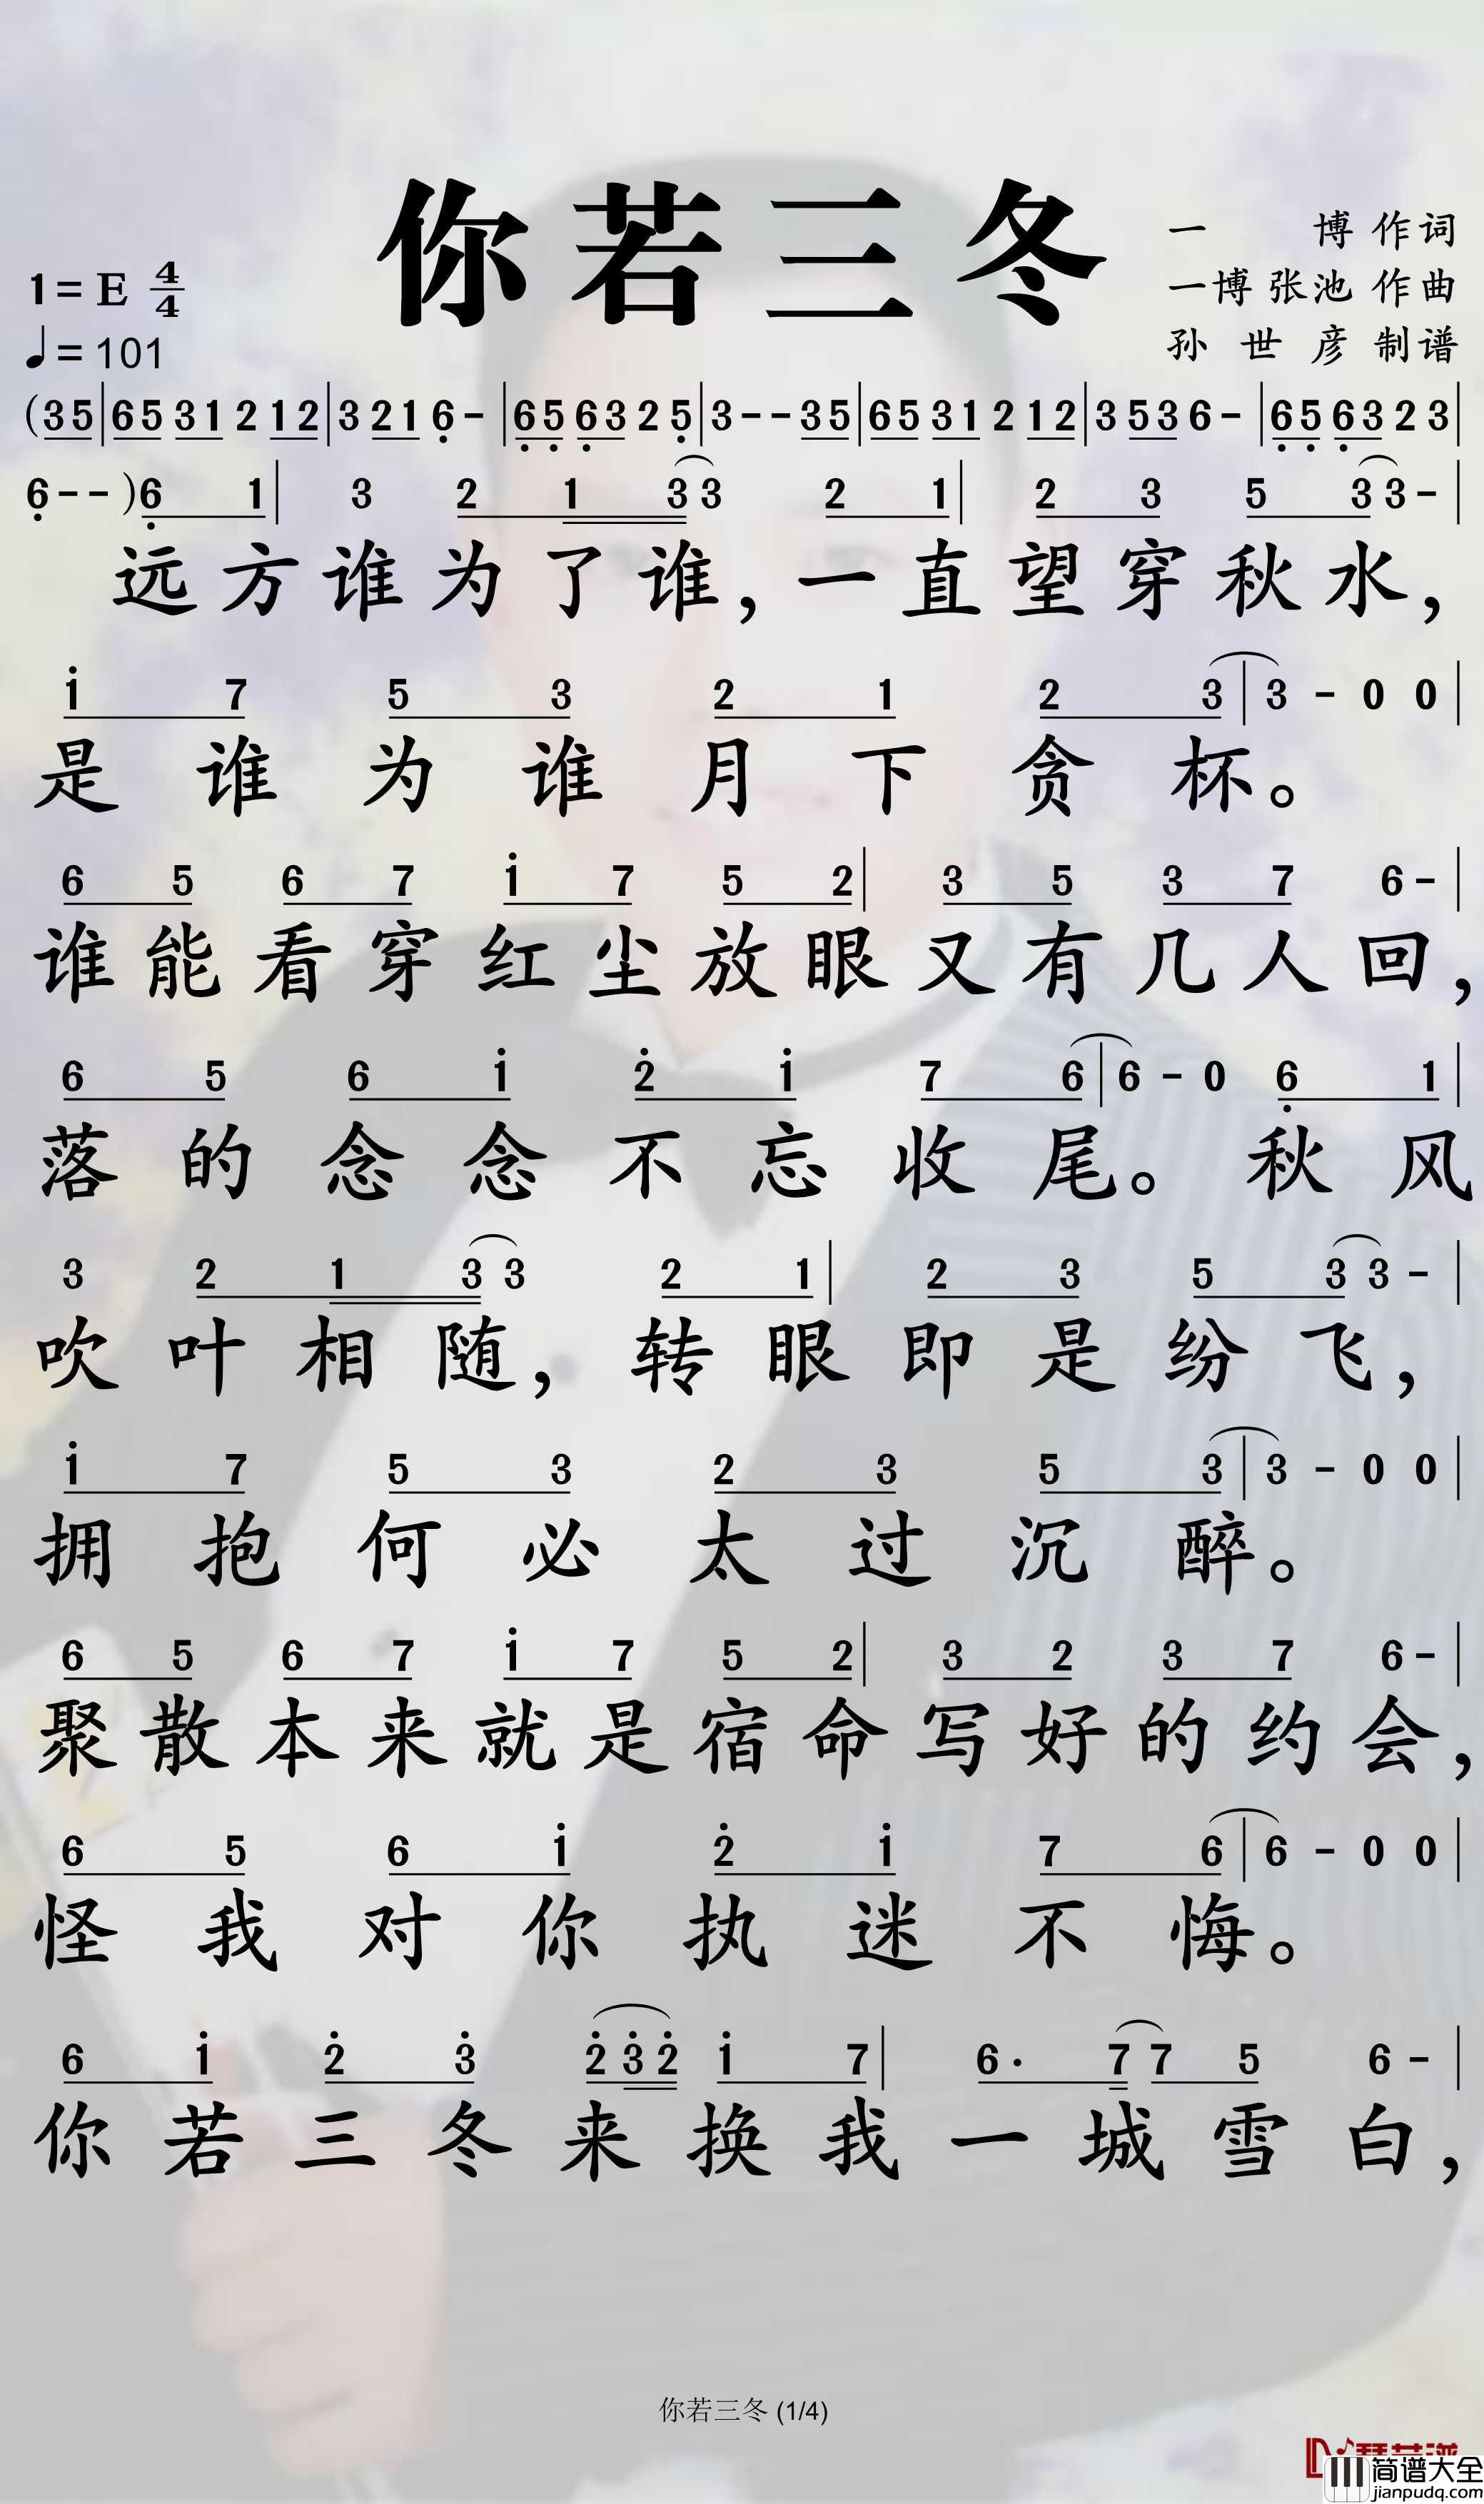 你若三冬
一 博 作词
一博 张池 作曲
孙 世 彦 制谱
1=E 4/4
♩=101
(35|65 31 2 12|3 21 6-|65 63 2 5|3--35|65 31 2 12|3 53 6-|65 63 2 3|
6--)6 1|3 2 1 3 3 2 1|2 3 5 3 3-|
远方谁为了谁，一直望穿秋水，
1 7 5 3 2 1 2 3|3 - 0 0|
是谁为谁月下贪杯。
6 5 6 7 1 7 5 2|3 5 3 7 6-|
谁能看穿红尘放眼又有几人回，
6 5 6 1 2 1 7 6|6 - 0 6 1|
落的念念不忘收尾。秋风
3 2 1 3 3 2 1|2 3 5 3 3-|
吹叶相随，转眼即是纷飞，
1 7 5 3 2 3 5 3|3 - 0 0|
拥抱何必太过沉醉。
6 5 6 7 1 7 5 2|3 2 3 7 6-|
聚散本来就是宿命写好的约会，
6 5 6 1 2 1 7 6|6 - 0 0|
怪我对你执迷不悔。
6 1 2 3 2 3 2 1 7|6· 7 7 5 6-|
你若三冬来换我一城雪白，
你若三冬 (1/4)
简谱大全
jianpudq.com